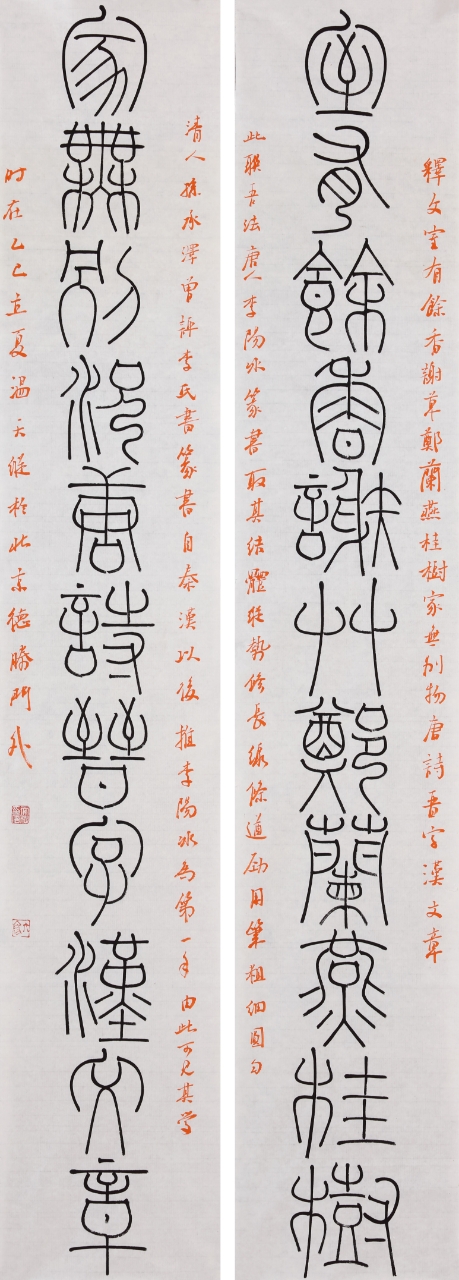 釋文室有餘香謝草鄭蘭燕桂樹家無别物唐詩晉字漢文章
室有餘香謝草鄭蘭燕桂樹
此聯吾法唐人李陽冰篆書取其結體勢修長線條遒勁用筆粗細圓勻
清人孫承澤曾評李氏書篆書自秦漢以後推李陽冰為第一手由此可見其學
家無别物唐詩晉字漢文章
时在乙巳立夏温天縱於北京德勝門外